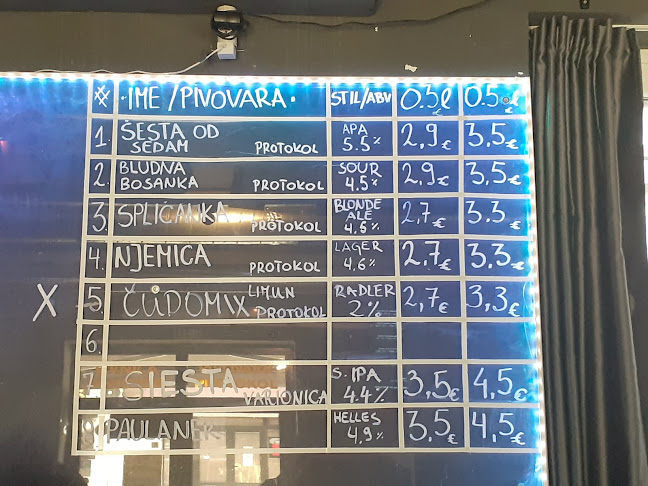 # IME/PIVOVARA. STIL/ABV 0.3l € 0.5l €
1. ŠESTA OD SEDAM PROTOKOL APA 5.5% 2,9€ 3,5€
2. BLUDNA BOSANKA PROTOKOL SOUR 4.5% 2,9€ 3,5€
3. SPLIĆANKA PROTOKOL BLONDE ALE 4,5% 2,7€ 3.3€
4. NJEMICA PROTOKOL LAGER 4.6% 2,7€ 3.3€
X 5 ČUDOMIX LIMUN PROTOKOL RADLER 2% 2,7€ 3,3€
6.
7 SIESTA VARIONICA S. IPA 4.4% 3,5€ 4,5€
PAULANER HELLES 4,9% 3,5€ 4,5€